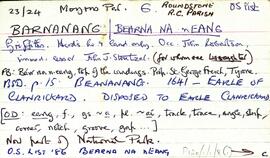 23/24 Moyrus Par. G. ROUNDSTONE R.C. PARISH OS list
BARNANANG: BEARNA NA nEANG
Griffiths. Herd's ho. & land only. Occ. John Robertson,
immed. lessor John J. Streeter.
FB: Béar na n-eang, pass of the
Par. St. George French, Tyrone.
BSD. p. 15. BEANANANG. 1641 - EARLE OF
CLANRICKARD. DISPOSED TO EARLE CLANRICKARD.
[OD: eang, f., gs. -a, pl. -aí, track, trace, angle, strip,
corner, notch, groove, gap...]
Now part of National Park.
O.S. LIST '86 BEARNA NA nEANG